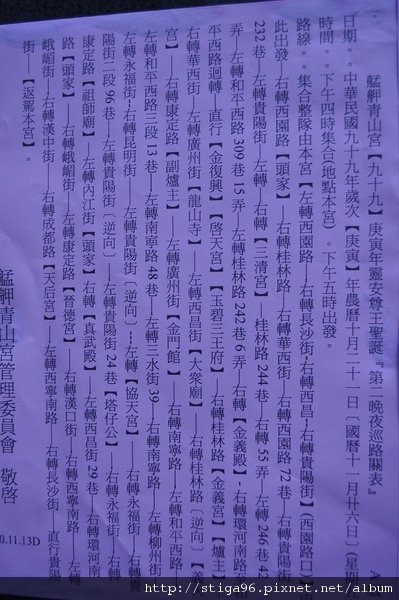 艋舺青山宮【九十九】庚寅年靈安尊王聖誕『第二晚夜巡路關表』 A
日期。。中華民國九十九年歲次【庚寅】年農曆十月二十一日〔國曆十一月廿六日〕(星期
時間。。下午四時集合(地點本宮)。下午五時出發。
路線。。集合整隊由本宮【左轉西園路——右轉長沙街——右轉西昌——右轉貴陽街】(西園路口)由
此出發——右轉西園路【頭家】——右轉桂林路——右轉華西街——右轉西園路 72 巷——右轉貴陽街
232 巷——左轉貴陽街——左轉——右轉【三清宮】——桂林路 244 巷——右轉 55 弄——左轉 246 巷 4
弄——左轉和平西路 309 巷 15 弄——左轉桂林路 242 巷 6 弄——右轉【金義殿】-右轉環河南路——
平西路迴轉——直行【金復興】【啓天宮】【玉碧三王府】——右轉桂林路【金義宮】【爐主】
右轉華西街——左轉廣州街【龍山寺】——左轉西昌街【大衆廟】——右轉桂林路〔逆向〕——【
宮】——右轉康定路【副爐主】——左轉廣州街【金門館】——右轉南寧路——左轉和平西路
左轉和平西路三段 13 巷——左轉南寧路 48 巷——左轉三水街 39——右轉南寧路——左轉柳州街
左轉永福街——右轉昆明街——左轉貴陽街〔逆向〕——左轉【協天宮】——右轉永福街——右轉貴
陽街二段 26 巷——左轉貴陽街〔逆向〕——左轉貴陽街 24 巷【塔仔公】——右轉永福街——右轉
康定路【祖師廟】——左轉內江街【頭家】右轉【真武殿】——左轉西昌街 29 巷——右轉環河南
路【頭家】——右轉峨嵋街——左轉康定路【晉德宮】——右轉漢口街——右轉西寧南路——左轉
峨嵋街——右轉漢中街——右轉成都路【天后宮】——左轉西寧南路——右轉長沙街——直行貴陽
街——【返駕本宮】。
艋舺青山宮管理委員會 敬啓
0.11.13D
http://stiga96.pixnet.net/album